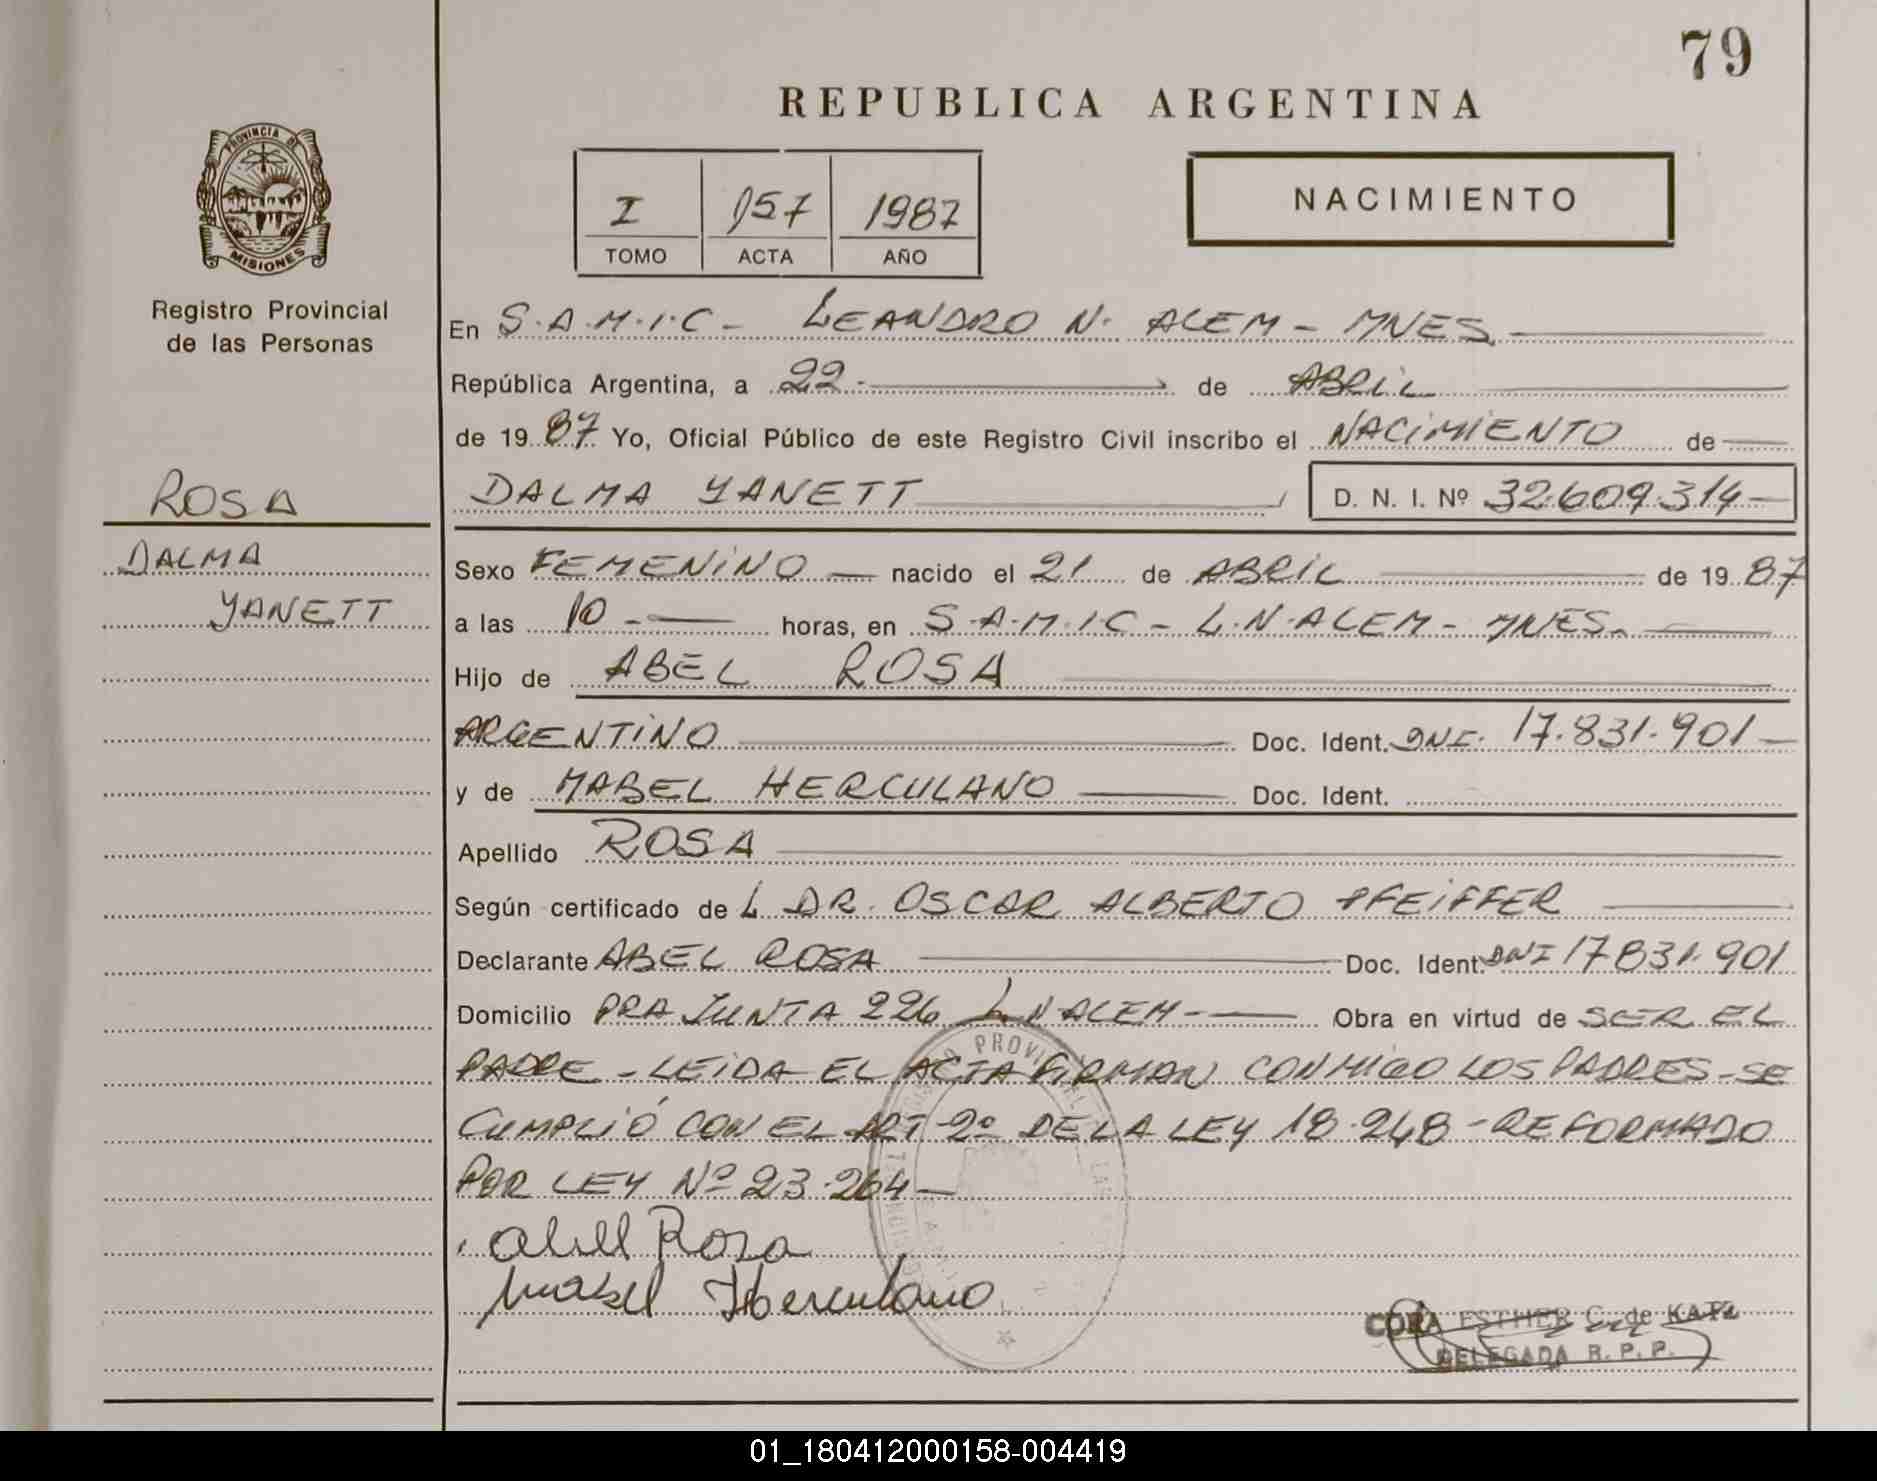 79
REPUBLICA ARGENTINA
PROVINCIA DE
MISIONES
Registro Provincial
de las Personas
I 157 1987
TOMO ACTA AÑO
NACIMIENTO
En S.A.M.I.C - LEANDRO N. ALEM - MNES.
República Argentina, a 22 - de ABRIL
de 19 87 Yo, Oficial Público de este Registro Civil inscribo el NACIMIENTO de
ROSA
DALMA YANETT D. N. I. Nº 32.609.314
DALMA
YANETT
Sexo FEMENINO nacido el 21 de ABRIL de 19 87
a las 10 - horas, en S.A.M.I.C - L.N.ALEM - MNES.
Hijo de ABEL ROSA
ARGENTINO Doc. Ident. DNI. 17.831.901
y de MABEL HERCULANO Doc. Ident.
Apellido ROSA
Según certificado de L DR. OSCAR ALBERTO PFEIFFER
Declarante ABEL ROSA Doc. Ident. DNI 17831.901
Domicilio PRA JUNTA 226 L.N.ALEM - Obra en virtud de SER EL
PADRE - LEIDA EL ACTA FIRMAN CONMIGO LOS PADRES - SE
CUMPLIÓ CON EL ART 2º DE LA LEY 18.248 - REFORMADO
POR LEY Nº 23.264 -
Abell Rosa
Mabel Herculano
CORA ESTHER C. de KATZ
DELEGADA R. P. P.
01_180412000158-004419